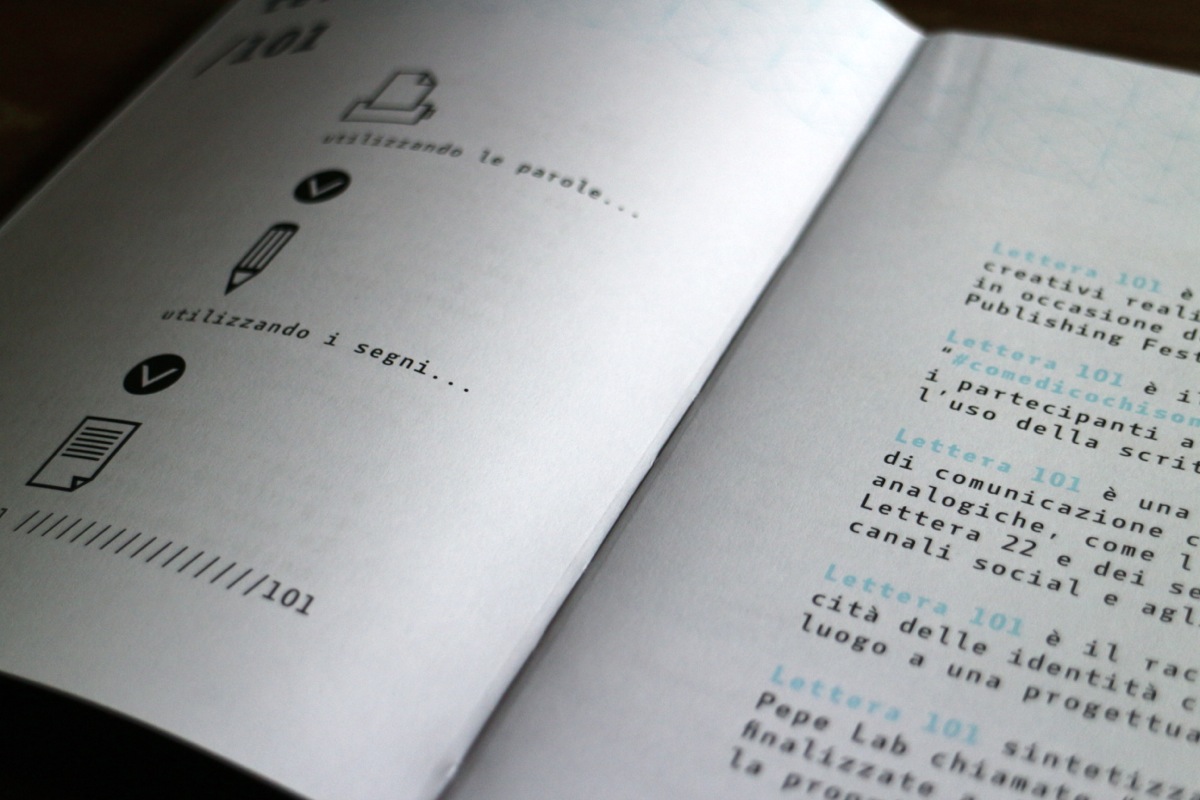 /101
utilizzando le parole...
utilizzando i segni...
///////////////////101
Lettera 101 è
creativi reali
in occasione d
Publishing Fest
Lettera 101 è i
"#comedicochison
i partecipanti a
l'uso della scrit
Lettera 101 è una
di comunicazione c
analogiche, come l
Lettera 22 e dei se
canali social e agl
Lettera 101 è il rac
cità delle identità c
luogo a una progettua
Lettera 101 sintetizz
Pepe Lab chiamate
finalizzate
la prog